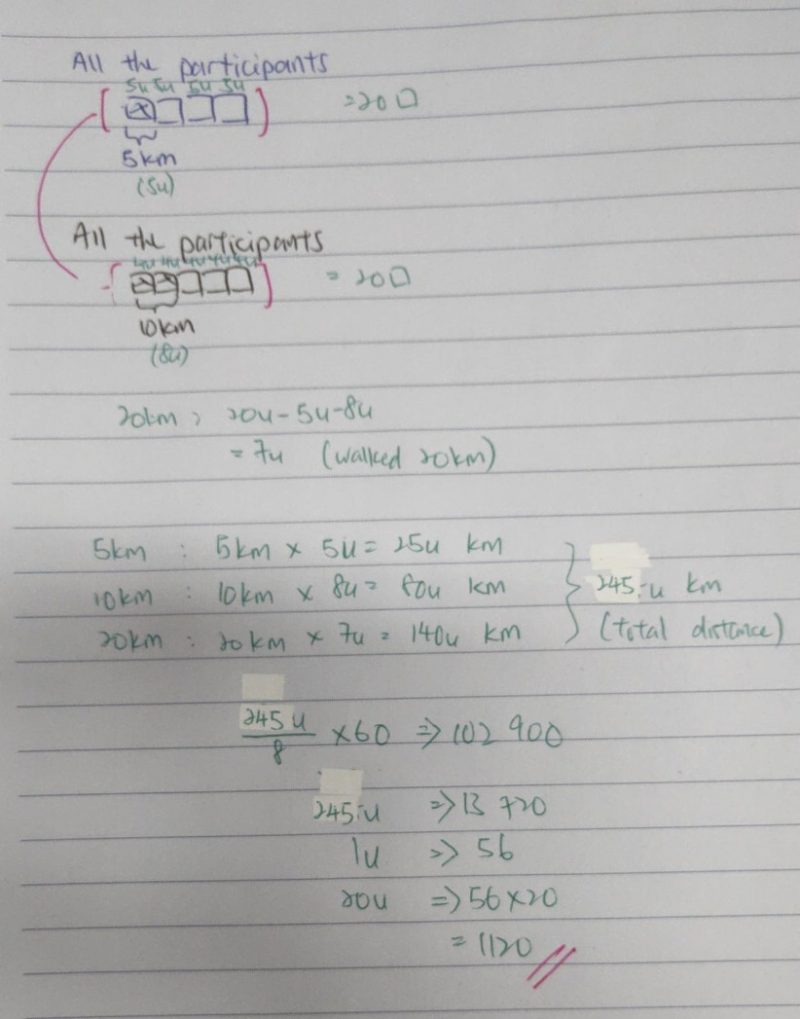 All the participants
5u 5u 5u 5u
= 20□
5km
(5u)
All the participants
4u 4u 4u 4u 4u
= 20□
10km
(8u)
20km : 20u - 5u - 8u
= 7u (walked 20km)
5km : 5km × 5u = 25u km
10km : 10km × 8u = 80u km
245 u km
20km : 20km × 7u = 140u km
(total distance)
245 u
/ 8 × 60 => 102 900
245 u => 13 720
1u => 56
20u => 56 × 20
= 1120